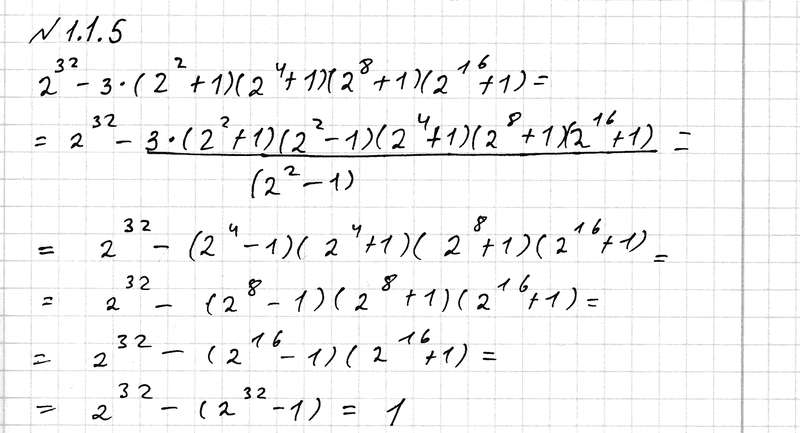 № 1.1.5
2^32 - 3·(2^2+1)(2^4+1)(2^8+1)(2^16+1) =
= 2^32 - 3·(2^2+1)(2^2-1)(2^4+1)(2^8+1)(2^16+1) =
(2^2-1)
= 2^32 - (2^4-1)(2^4+1)(2^8+1)(2^16+1) =
= 2^32 - (2^8-1)(2^8+1)(2^16+1) =
= 2^32 - (2^16-1)(2^16+1) =
= 2^32 - (2^32-1) = 1